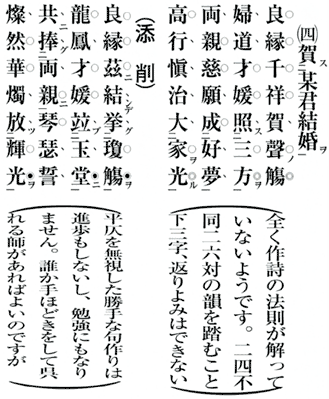 (四)賀某君結婚
良縁千祥賀聲觴
婦道才媛照三方
両親慈願成好夢
高行愼治大家光
全く作詩の法則が解って
いないようです。二四不
同二六対の韻を踏むこと
下三字、返りよみはできない
(添削)
良縁茲結挙瓊觴
龍鳳才媛竝玉堂
共捧両親琴瑟誓
燦然華燭放輝光
平仄を無視した勝手な句作りは
進歩もしないし、勉強にもなり
ません。誰か手ほどきをして呉
れる師があればよいのですが